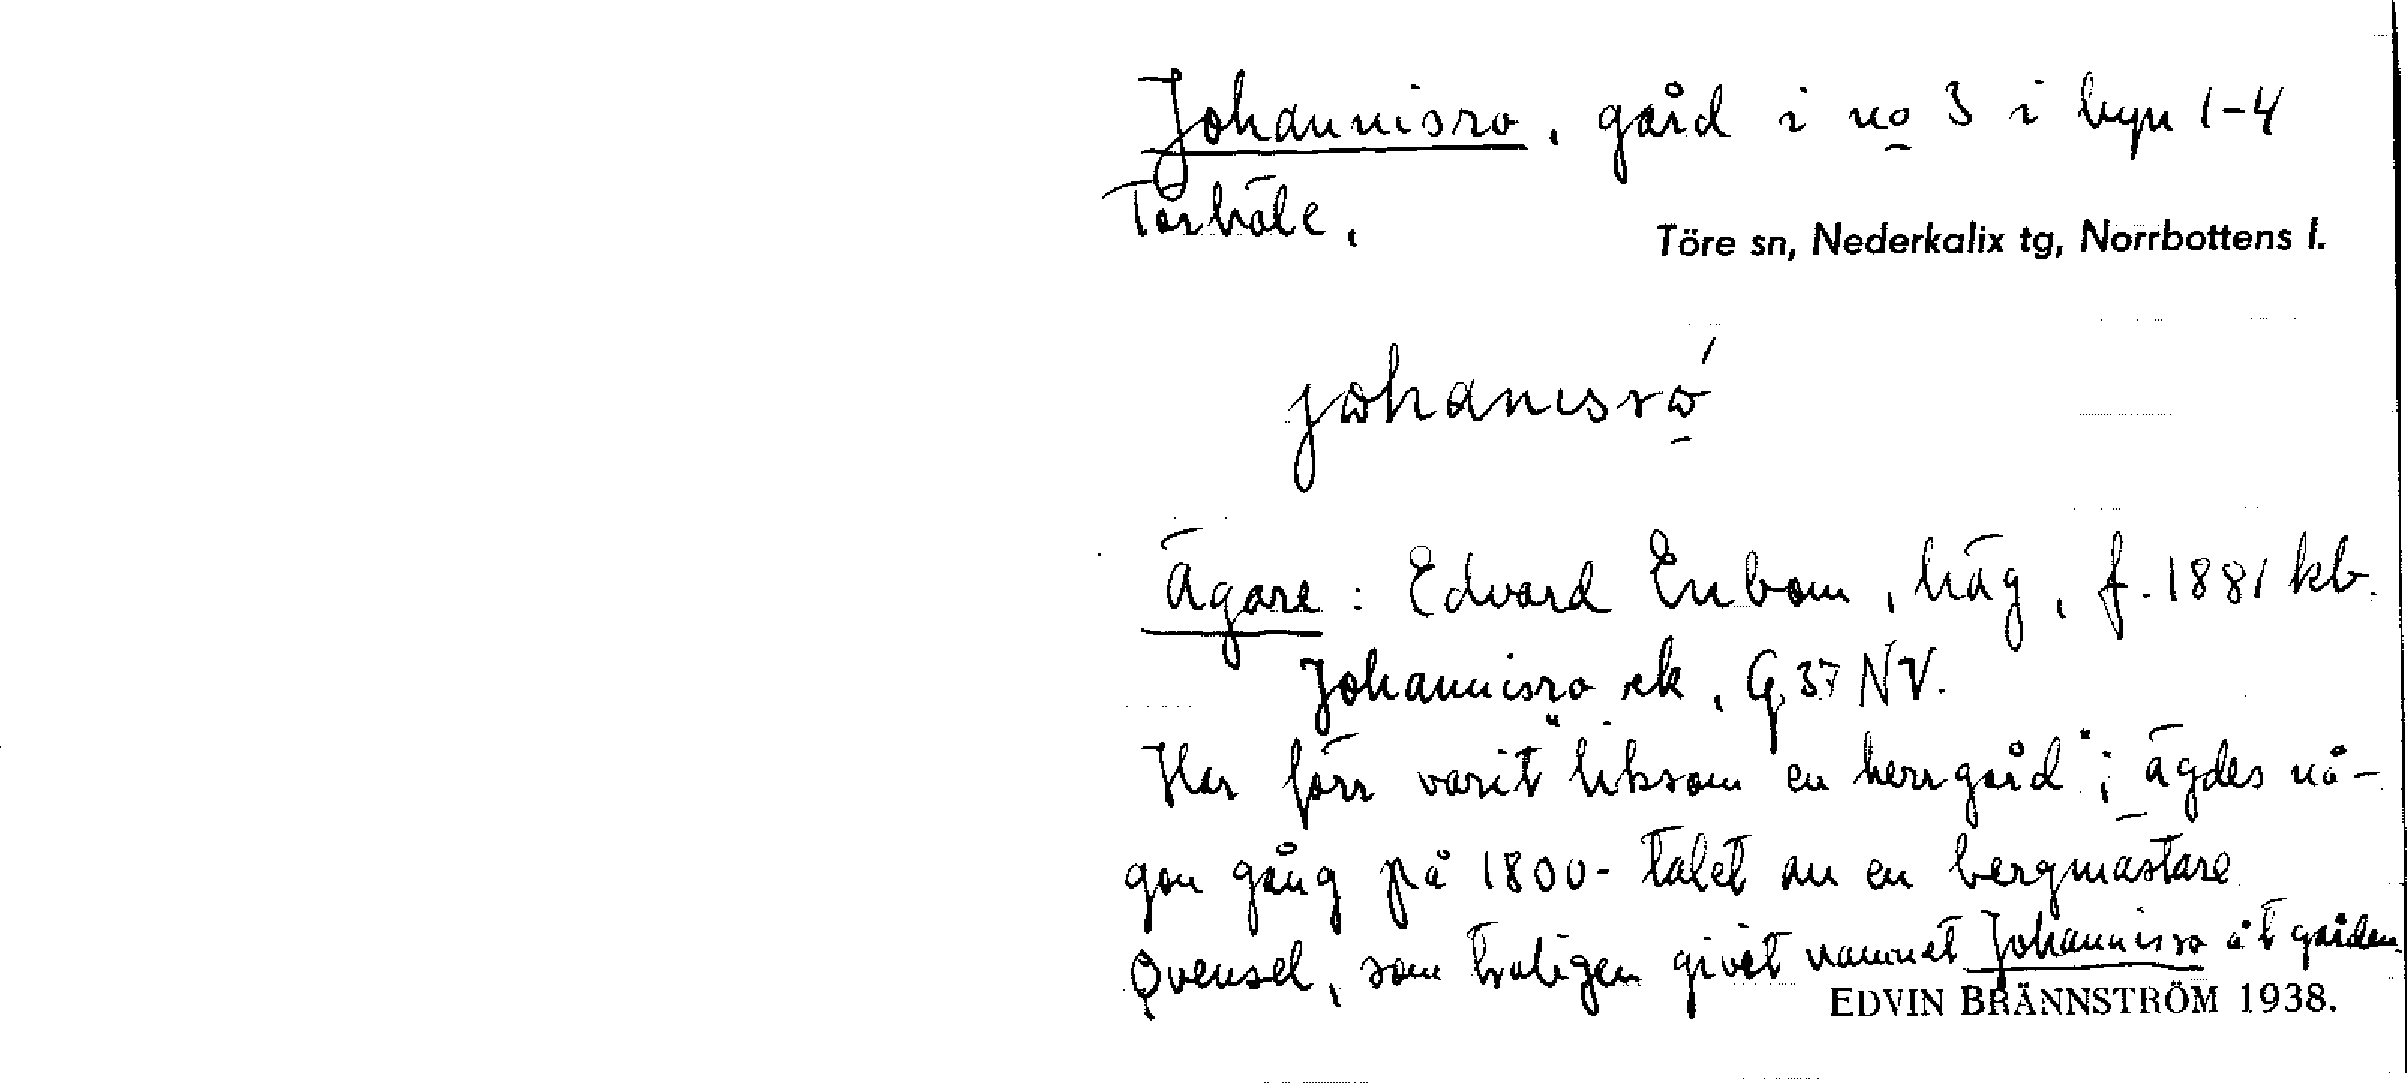 Johannisro, gård i no 3 i byn 1-4
Törböle,
Töre sn, Nederkalix tg, Norrbottens l.
johanisro
Ägare: Edvard Enbom, häg, f. 1881 kb.
Johannisro ek, G 37 NV.
Har förr varit "liksom en herrgård"; ägdes nå-
gon gång på 1800-talet av en bergmästare
Qvensel, som troligen givit namnet Johannisro åt gården.
EDVIN BRÄNNSTRÖM 1938.